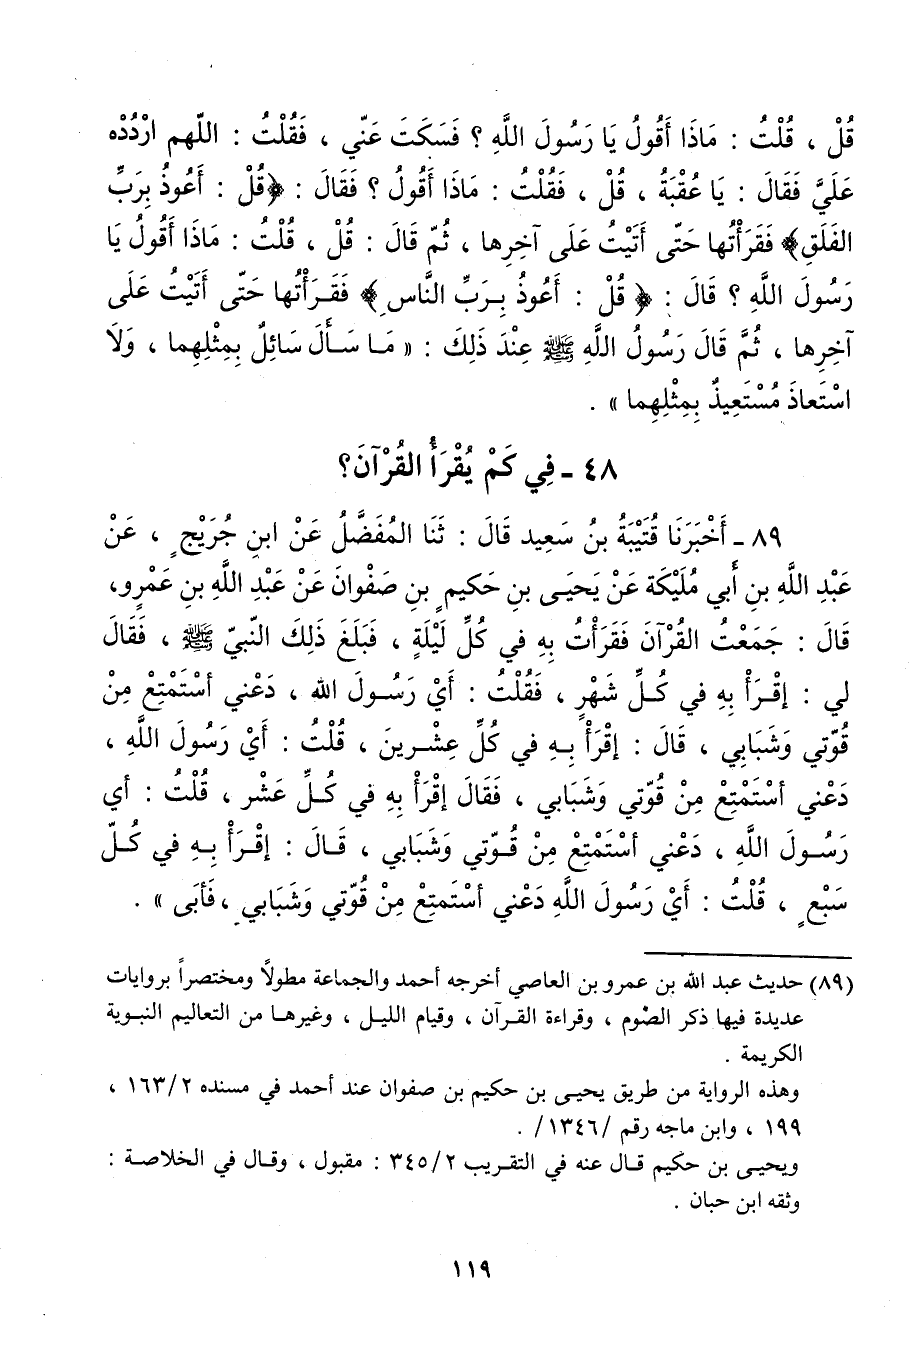 قُلْ ، قُلْتُ : مَاذَا أَقُولُ يَا رَسُولَ اللَّهِ ؟ فَسَكَتَ عَنّي ، فَقُلْتُ : اللّهم ارْدُدْه
عَلَيَّ فَقَالَ : يَا عُقْبَةُ ، قُلْ ، فَقُلْتُ : مَاذَا أَقُولُ ؟ فَقَالَ : ﴿قُلْ : أَعُوذُ بِرَبِّ
الفَلَقِ﴾ فَقَرَأْتُها حَتّى أَتَيْتُ عَلَى آخِرِها ، ثُمّ قَالَ : قُلْ ، قُلْتُ : مَاذَا أَقُولُ يَا
رَسُولَ اللَّهِ ؟ قَالَ : ﴿ قُلْ : أَعُوذُ بِرَبِّ النَّاسِ﴾ فَقَرَأْتُها حَتّى أَتَيْتُ عَلى
آخِرِها ، ثُمَّ قَالَ رَسُولُ اللهِ ﷺ عِنْدَ ذَلِكَ : « مَا سَأَلَ سَائِلٌ بِمِثْلِهِما ، وَلاَ
اسْتَعاذَ مُسْتَعِيذٌ بِمِثْلِهِما » .
٤٨ - فِي كَمْ يُقْرَأُ القُرْآنَ؟
٨٩ - أَخْبَرَنَا قُتَيْبَةُ بنُ سَعِيد قَالَ : ثَنَا المُفَضَّلُ عَنْ ابنِ جُرَيْجٍ ، عَنْ
عَبْدِ اللَّهِ بنِ أَبي مُلَيْكَة عَنْ يَحيَى بنِ حَكيمٍ بنِ صَفْوانَ عَنْ عَبْدِ اللَّهِ بنِ عَمْرٍو،
قَالَ : جَمَعْتُ القُرْآنَ فَقَرَأْتُ بِهِ في كُلِّ لَيْلَةٍ ، فَبَلَغَ ذَلِكَ النّبيّ ﷺ ، فَقَالَ
لي : إقْرَأْ بِهِ في كُلِّ شَهْرٍ ، فَقُلْتُ : أَيْ رَسُولَ الله ، دَعْني أسْتَمْتِعْ مِنْ
قُوّتي وَشَبَابِي ، قَالَ : إقْرَأْ بِهِ في كُلِّ عِشْرينَ ، قُلْتُ : أَيْ رَسُولَ اللَّهِ ،
دَعْني أسْتَمْتِعْ مِنْ قُوّتي وَشَبَابي ، فَقَالَ إقْرَأْ بِهِ في كُلِّ عَشْر ، قُلْتُ : أي
رَسُولَ اللَّهِ ، دَعْني أسْتَمْتِعْ مِنْ قُوّتي وَشَبَابي ، قَالَ : إقْرَأْ بِهِ في كُلّ
سَبْعٍ ، قُلْتُ : أَيْ رَسُولَ اللَّهِ دَعْني أسْتَمتِعْ مِنْ قُوّتي وَشَبَابي ، فَأبَى » .
(٨٩) حديث عبد الله بن عمرو بن العاصي أخرجه أحمد والجماعة مطولاً ومختصراً بروايات
عديدة فيها ذكر الصّوم ، وقراءة القرآن ، وقيام الليل ، وغيرها من التعاليم النبوية
الكريمة .
وهذه الرواية من طريق يحيى بن حكيم بن صفوان عند أحمد في مسنده ١٦٣/٢ ،
١٩٩ ، وابن ماجه رقم /١٣٤٦/ .
ويحيى بن حكيم قال عنه في التقريب ٣٤٥/٢ : مقبول ، وقال في الخلاصة :
وثقه ابن حبان .
١١٩